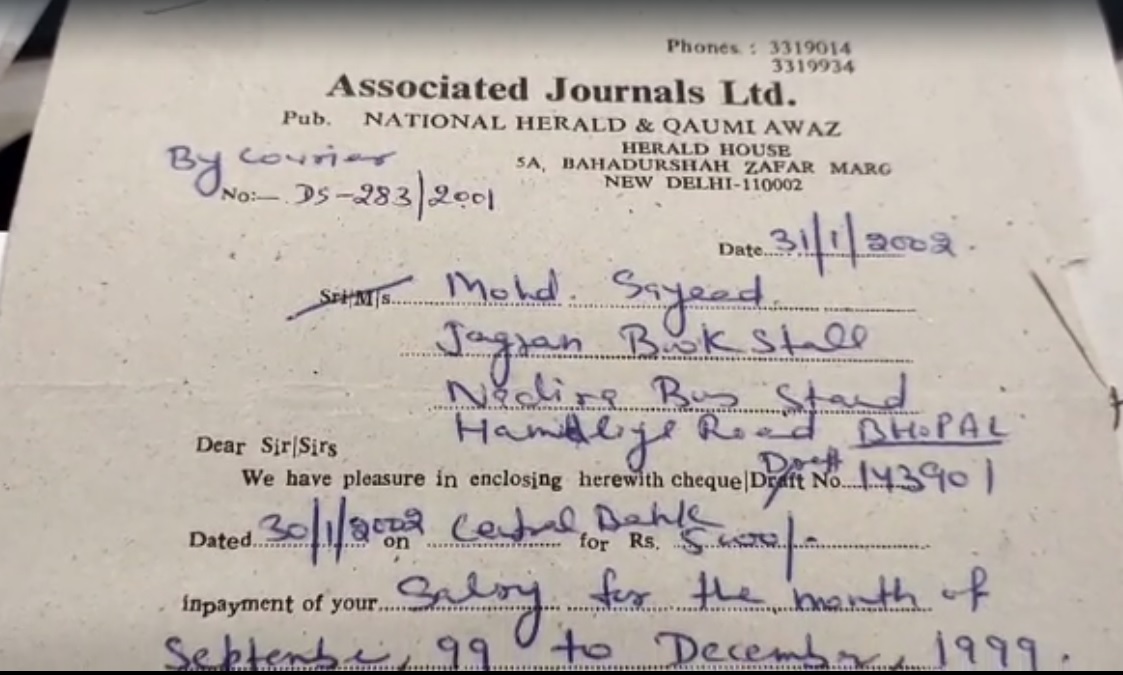 Phones : 3319014
3319934
Associated Journals Ltd.
Pub. NATIONAL HERALD & QAUMI AWAZ
HERALD HOUSE
5A, BAHADURSHAH ZAFAR MARG
NEW DELHI-110002
By Courier
No:— DS-283/2001
Date 31/1/2002.
Sri/M/s. Mohd. Sayeed
Jagran Book Stall
Nadira Bus Stand
Road BHOPAL
Dear Sir/Sirs
We have pleasure in enclosing herewith cheque/Draft No. 143901
Draft
Dated 30/1/2002 on Central Bank for Rs. 5000/-
inpayment of your Salary for the month of
September, 99 to December, 1999.